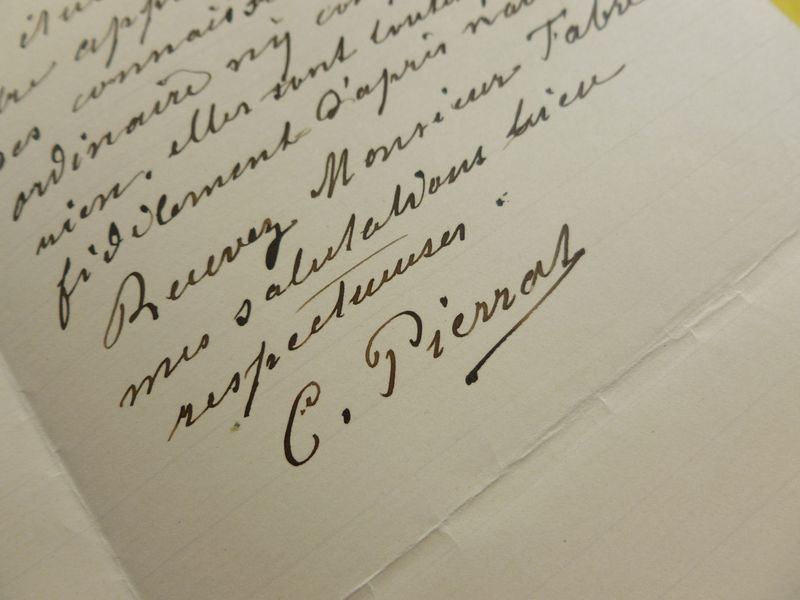 ses connais
ordinaire n'y con
rien, elles sont toutes
fidèlement d'après na
Recevez Monsieur Fabre
mes salutations bien
respectueuses.
C. Pierrat